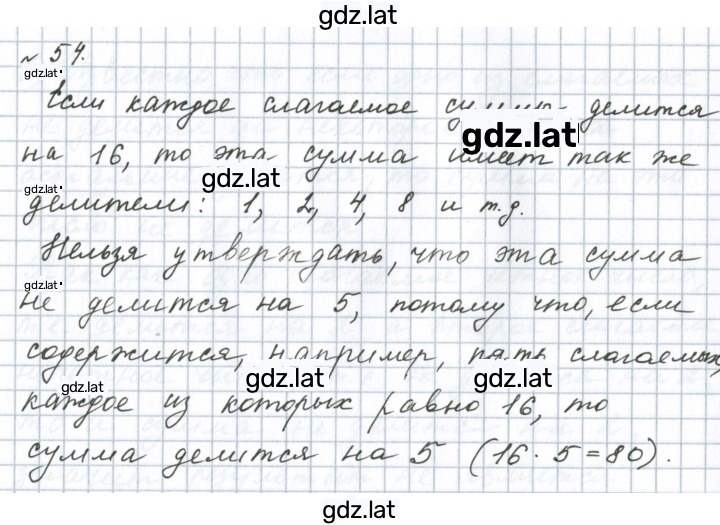 gdz.lat
№ 54.
gdz.lat
Если каждое слагаемое суммы делится
gdz.lat
на 16, то эта сумма имеет так же
gdz.lat
gdz.lat
делители: 1, 2, 4, 8 и т.д.
Нельзя утверждать, что эта сумма
gdz.lat
не делится на 5, потому что, если
содержится, например, пять слагаемых,
gdz.lat gdz.lat gdz.lat
каждое из которых равно 16, то
сумма делится на 5 (16 · 5 = 80).
gdz.lat